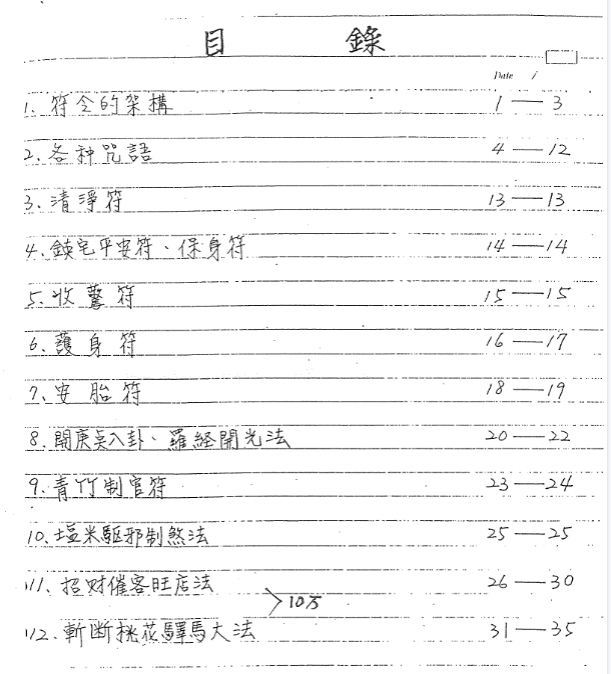 目 錄
Date /
1. 符令的架構 1 — 3
2. 各种咒語 4 — 12
3. 清淨符 13 — 13
4. 鎮宅平安符、保身符 14 — 14
5. 收驚符 15 — 15
6. 護身符 16 — 17
7. 安胎符 18 — 19
8. 開庚八卦、羅経開光法 20 — 22
9. 青竹制官符 23 — 24
10. 塩米駆邪制煞法 25 — 25
11. 招财催客旺店法 26 — 30
>10万
12. 斬断桃花驛馬大法 31 — 35